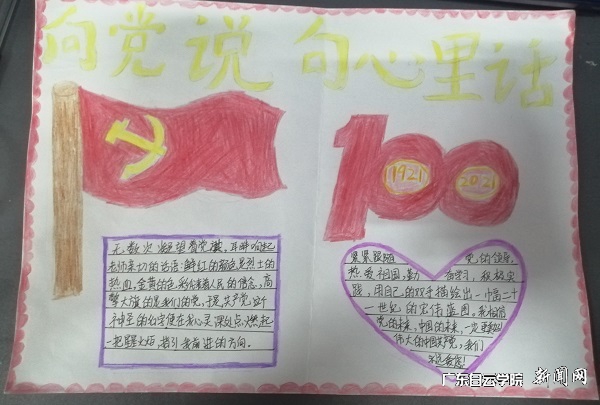 向党说句心里话
1921
2021
无数次凝望着党旗，耳畔响起
老师亲切的话语：鲜红的颜色是烈士的
热血，金黄的色彩代表着人民的信念，高
擎大旗的是我们的党，提共产党这个
神圣的名字便在我心灵深处点燃起
一把璀火炬，指引我奋进的方向。
紧紧跟随 党的领导，
热爱祖国，勤 奋学习，积极实
践，用自己的双手描绘出一幅二十
一世纪的宏伟蓝图，我相信
党的未来，中国的未来，一定更美好！
伟大的中国共产党，我们
永远爱您！
广东白云学院 新闻网